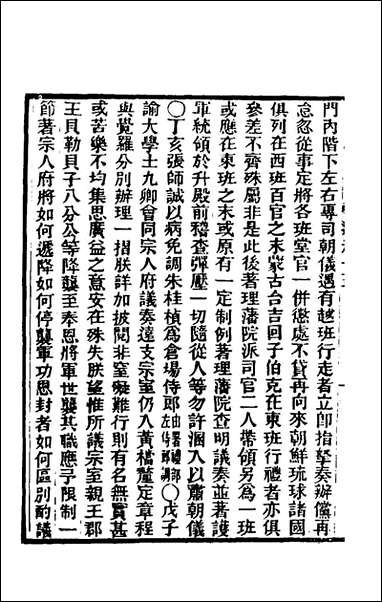 門內階下左右專司朝儀遇有越班行走者立卽指拏奏辦儻再
怠忽從事定將各班堂官一併懲處不貸再向來朝鮮琉球諸國
俱列在西班百官之末蒙古台吉回子伯克在東班行禮者亦俱
參差不齊殊屬非是此後著理藩院派司官二人帶領另爲一班
或應在東班之末或原有一定制例著理藩院查明議奏並著護
軍統領於升殿前稽查彈壓一切隨從人等勿許溷入以肅朝儀
○丁亥張師誠以病免調朱桂楨爲倉場侍郎由署禮部左侍郎調○戊子
諭大學士九卿會同宗人府議奏遠支宗室仍入黃檔釐定章程
與覺羅分別辦理一摺朕詳加披閱非窒礙難行則有名無實甚
或苦樂不均集思廣益之意安在殊失朕望惟所議宗室親王郡
王貝勒貝子八分公等降襲至奉恩將軍世襲其職應予限制一
節著宗人府將如何遞降如何停襲軍功恩封者如何區別酌議